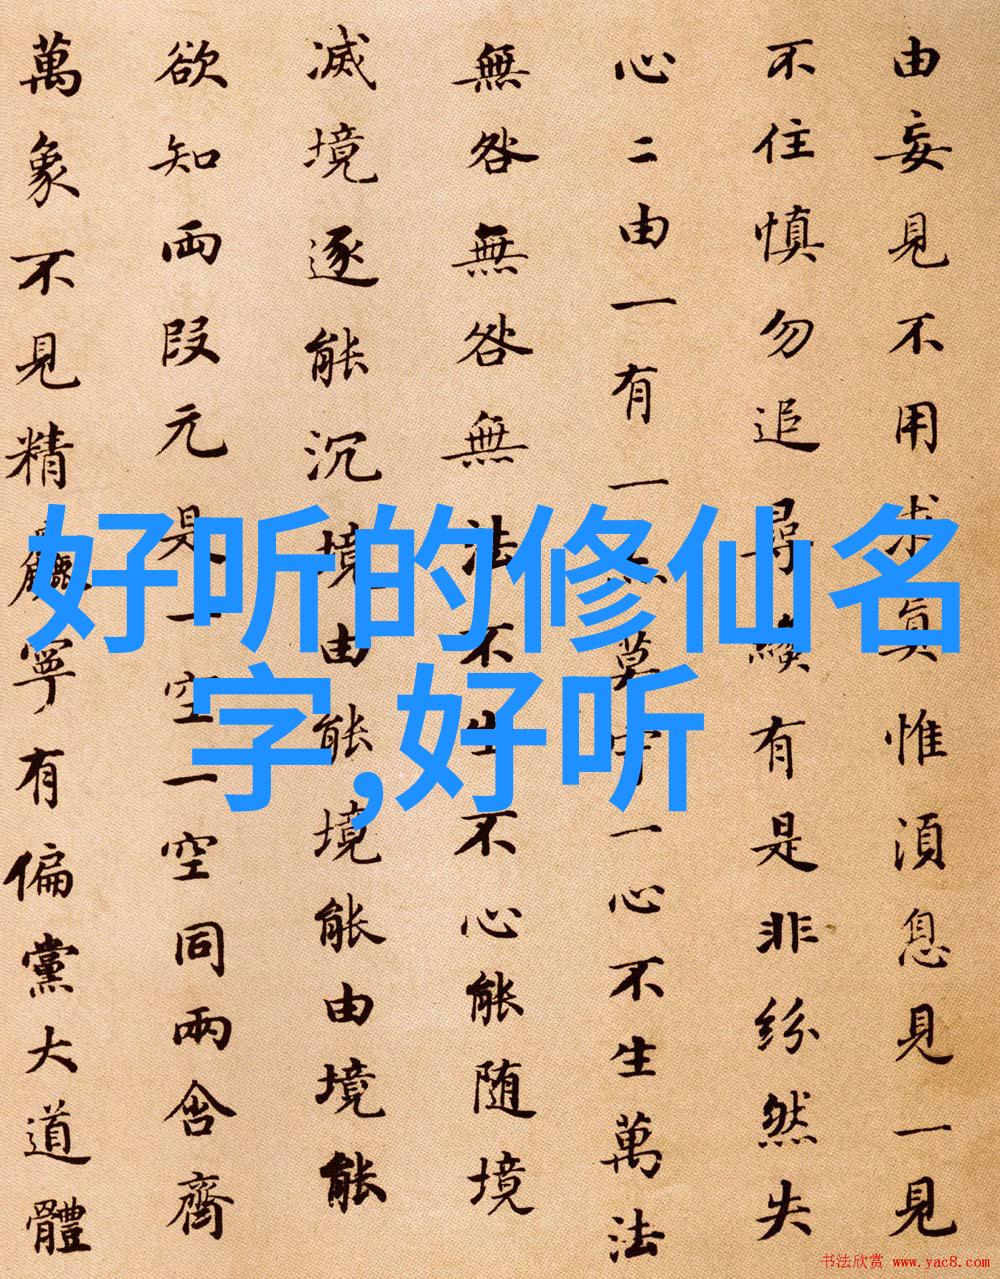 由妄見不用求真惟湏息見一見
不住慎勿追尋纔有是非紛然失
心二由一有一亦莫守一心不生萬法
無咎無咎無法不生不心能随境
滅境逐能沉境由能境能由境能
欲知両段元是一空一空同兩含齊
萬象不見精麤寧有偏黨大道體
好听的修仙名
字,好听
书法欣赏 www.yac8.com